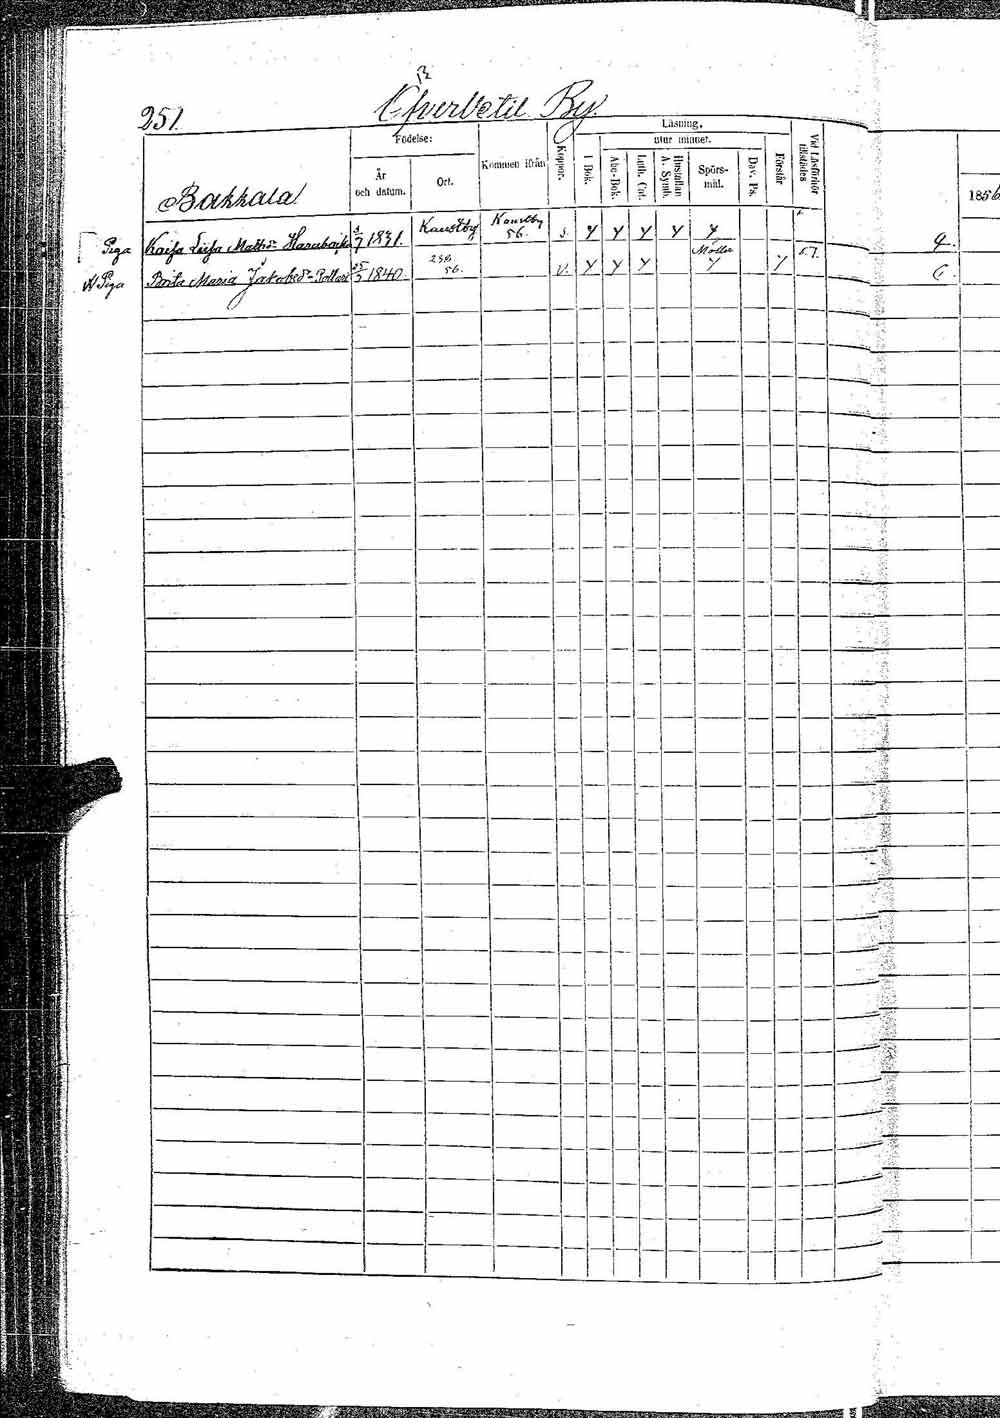 251.
Öfvervetil By.
Bakkala
Födelse:
År och datum.
Ort.
Kommen ifrån
Koppor.
Läsning,
I Bok.
utur minnet.
Abc-Bok.
Luth. Cat.
Hustaflan A. Symb.
Spörsmål.
Dav. Ps.
Förstår
Vid Läsförhör tillstädes
185
Piga Kaisa Lisa Matts- 7 18 1. Kaustby Kaustby 56. s. y y y y y
Piga Brita Maria Jakobsd- 25/3 1840. 256. 56. v. y y y Moller y y 57.